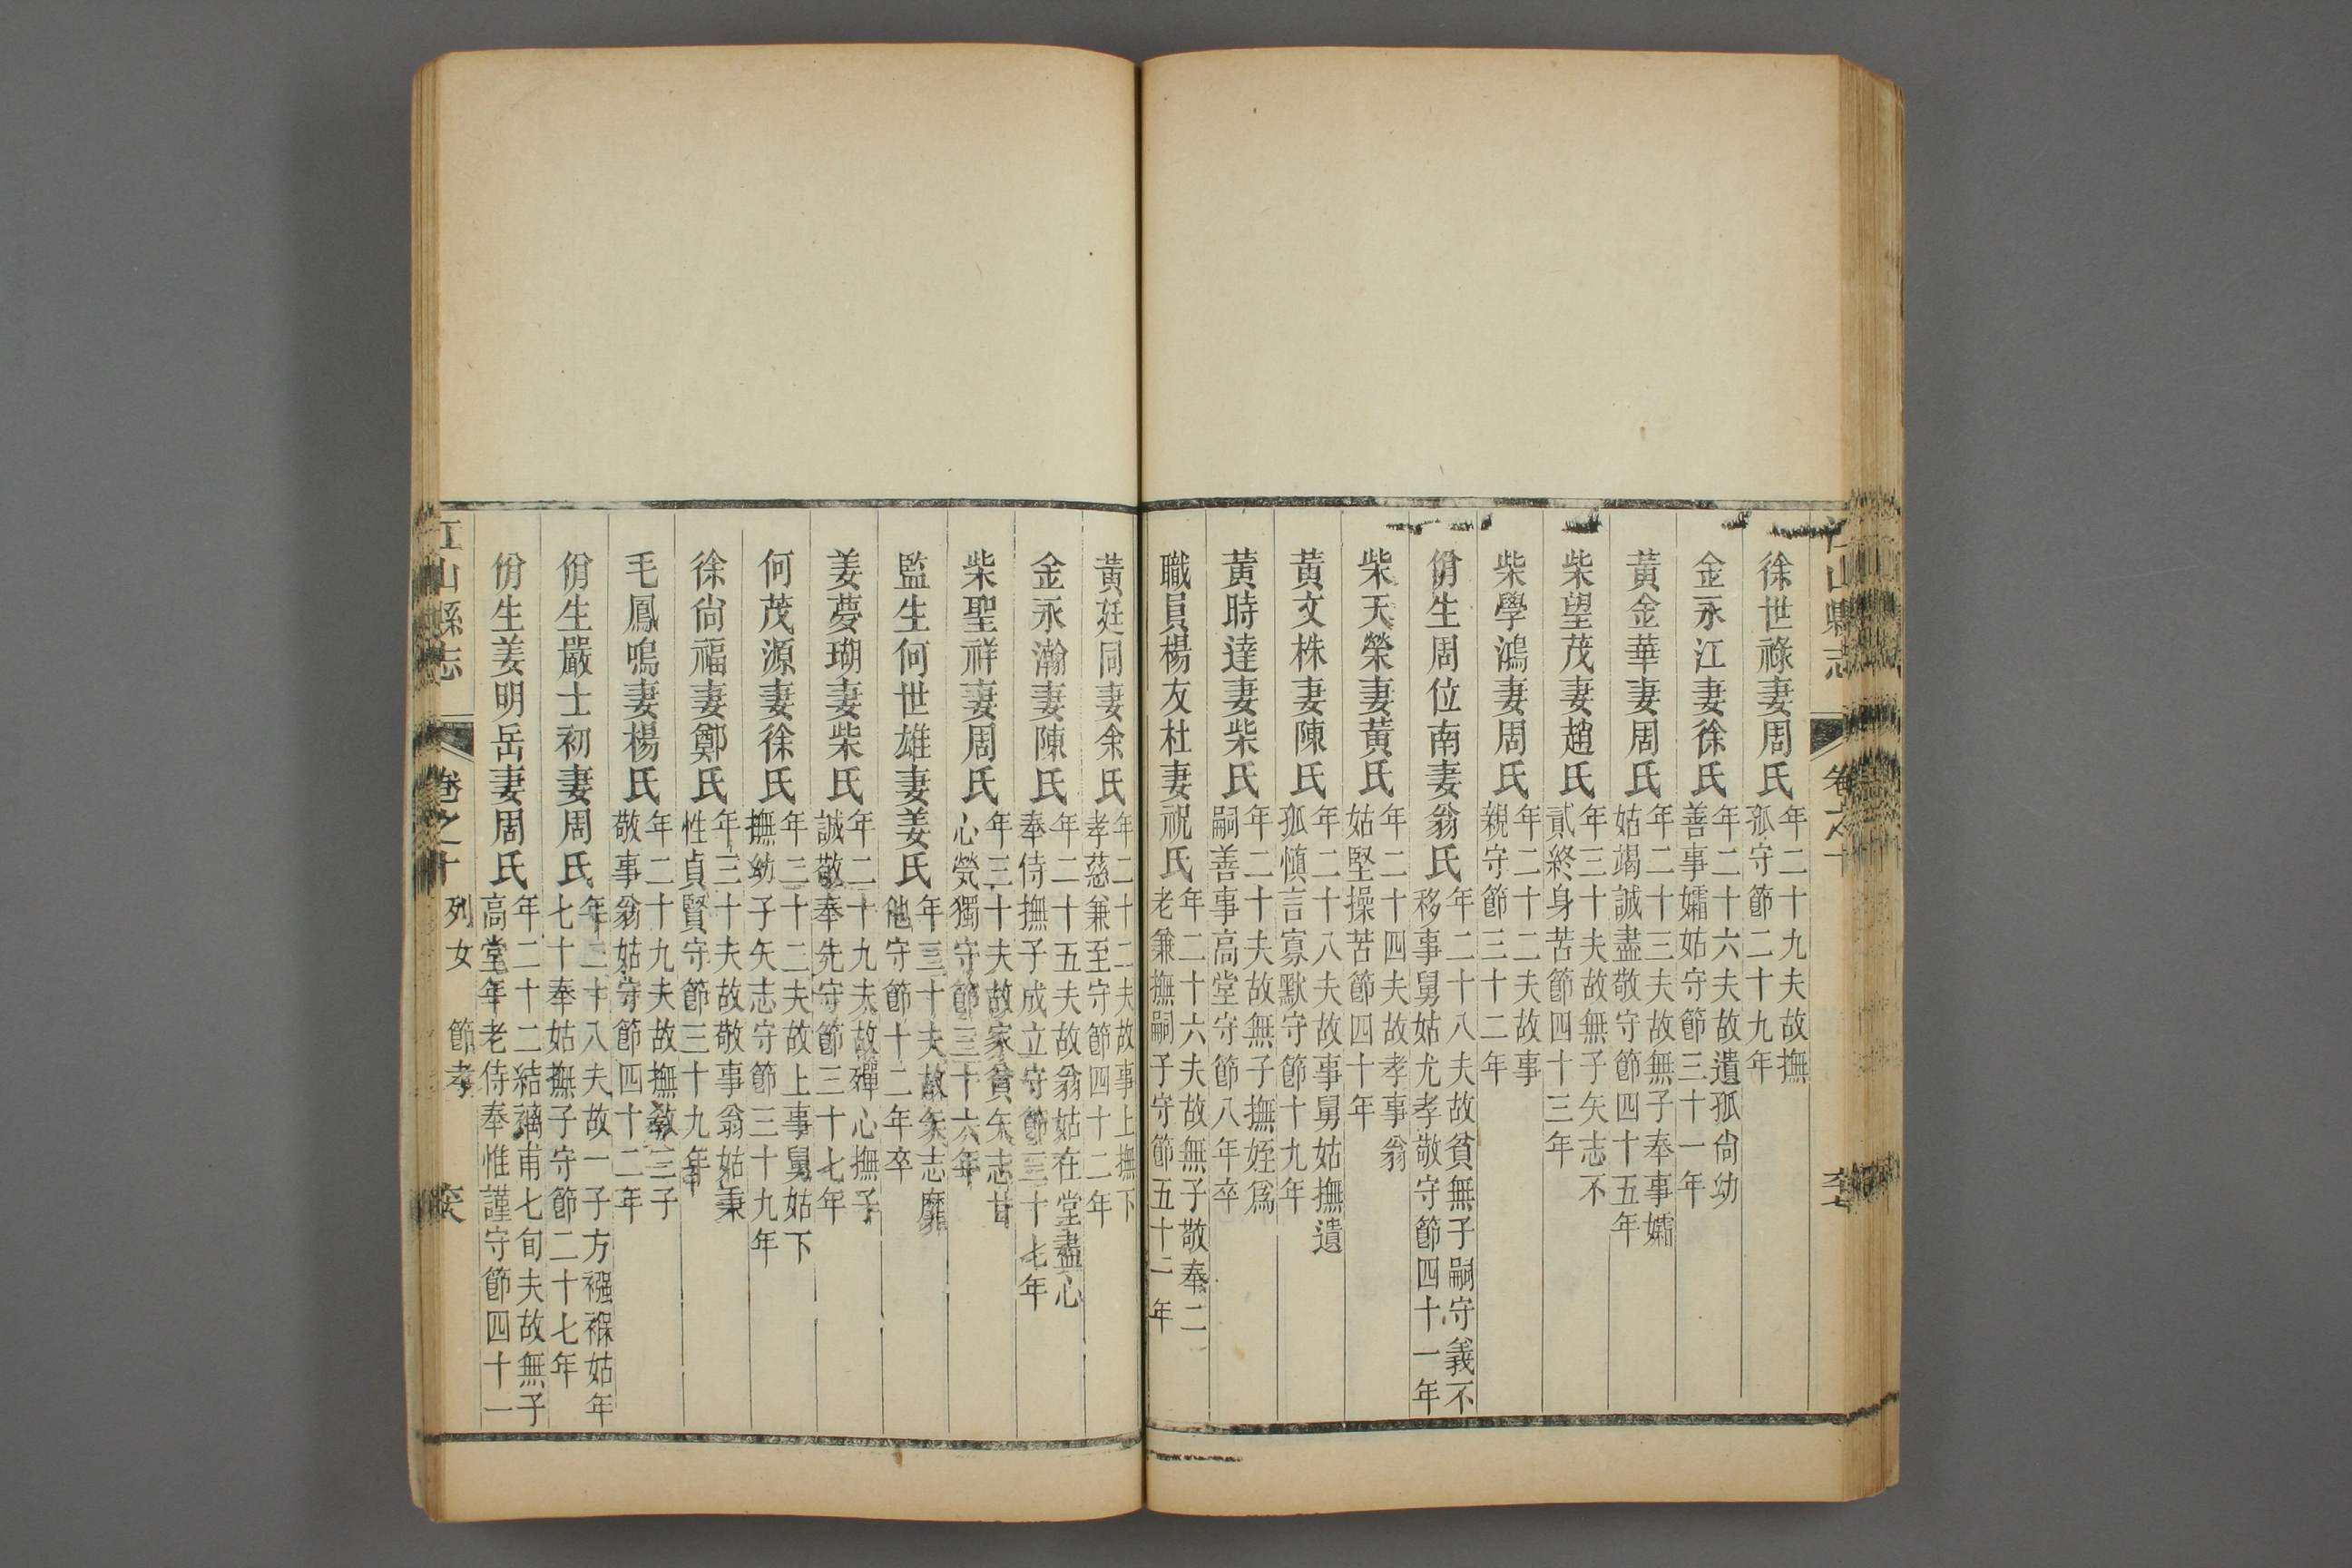 徐世祿妻周氏年二十九夫故撫孤守節二十九年
金永江妻徐氏年二十六夫故遺孤尙幼善事孀姑守節三十一年
黃金華妻周氏年二十三夫故無子奉事孀姑竭誠盡敬守節四十五年
柴望茂妻趙氏年三十夫故無子矢志不貳終身苦節四十三年
柴學鴻妻周氏年二十二夫故事親守節三十二年
佾生周位南妻翁氏年二十八夫故貧無子嗣守義不移事舅姑尤孝敬守節四十一年
柴天榮妻黃氏年二十四夫故孝事翁姑堅操苦節四十年
黃文株妻陳氏年二十八夫故事舅姑撫遺孤愼言寡默守節十九年
黃時達妻柴氏年二十夫故無子撫姪爲嗣善事高堂守節八年卒
職員楊友杜妻祝氏年二十六夫故無子敬奉二老兼撫嗣子守節五十二年
黃廷同妻余氏年二十二夫故事上撫下孝慈兼至守節四十二年
金永瀚妻陳氏年二十五夫故翁姑在堂盡心奉侍撫子成立守節三十七年
柴聖祥妻周氏年三十夫故家貧矢志甘心煢獨守節三十六年
監生何世雄妻姜氏年三十夫故矢志靡他守節十二年卒
姜夢瑚妻柴氏年二十九夫故殫心撫子誠敬奉先守節三十七年
何茂源妻徐氏年三十二夫故上事舅姑下撫幼子矢志守節三十九年
徐尙福妻鄭氏年三十夫故敬事翁姑秉性貞賢守節三十九年
毛鳳鳴妻楊氏年二十九夫故撫敎三子敬事翁姑守節四十二年
佾生嚴士初妻周氏年二十八夫故一子方襁褓姑年七十奉姑撫子守節二十七年
佾生姜明岳妻周氏年二十二結褵甫七旬夫故無子高堂年老侍奉惟謹守節四十一
江山縣志 卷之十 列女 節孝